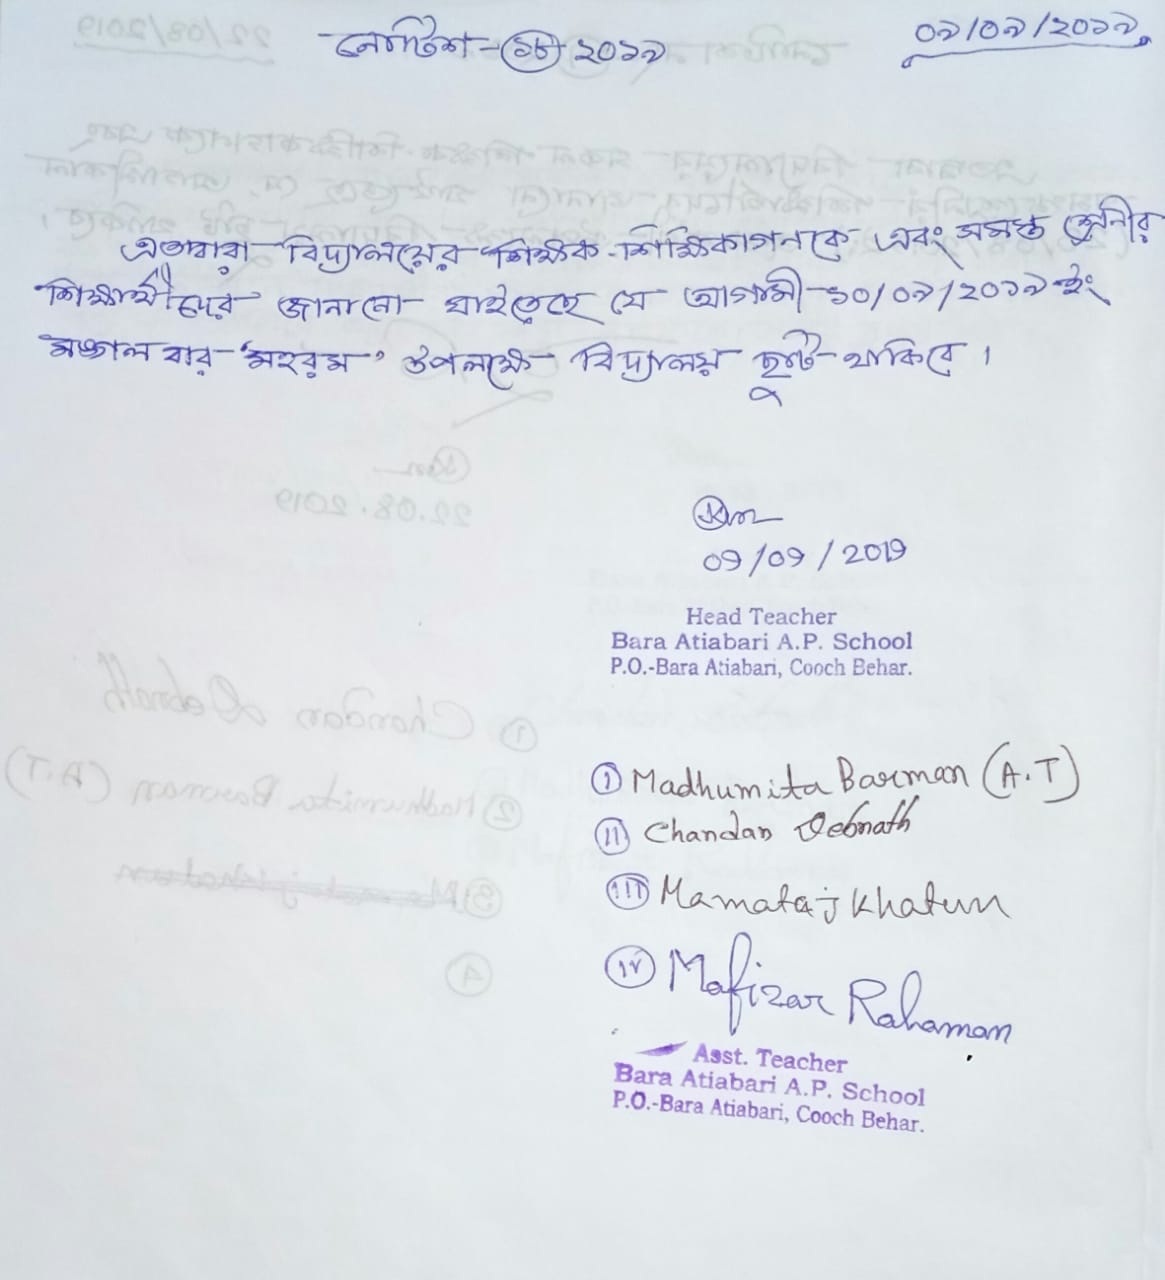 নোটিশ - ১৮ ২০১৯
০৯/০৯/২০১৯
এতদ্বারা বিদ্যালয়ের শিক্ষক-শিক্ষিকাগনকে এবং সমস্ত শ্রেনীর
শিক্ষার্থীদের জানানো যাইতেছে যে আগামী ১০/০৯/২০১৯ ইং
মঙ্গলবার 'মহরম' উপলক্ষে বিদ্যালয় ছুটি থাকিবে।
09/09/2019
Head Teacher
Bara Atiabari A.P. School
P.O.-Bara Atiabari, Cooch Behar.
I Madhumita Barman (A.T)
II Chandan Debnath
III Mamataj Khatun
IV Mafizar Rahaman
Asst. Teacher
Bara Atiabari A.P. School
P.O.-Bara Atiabari, Cooch Behar.